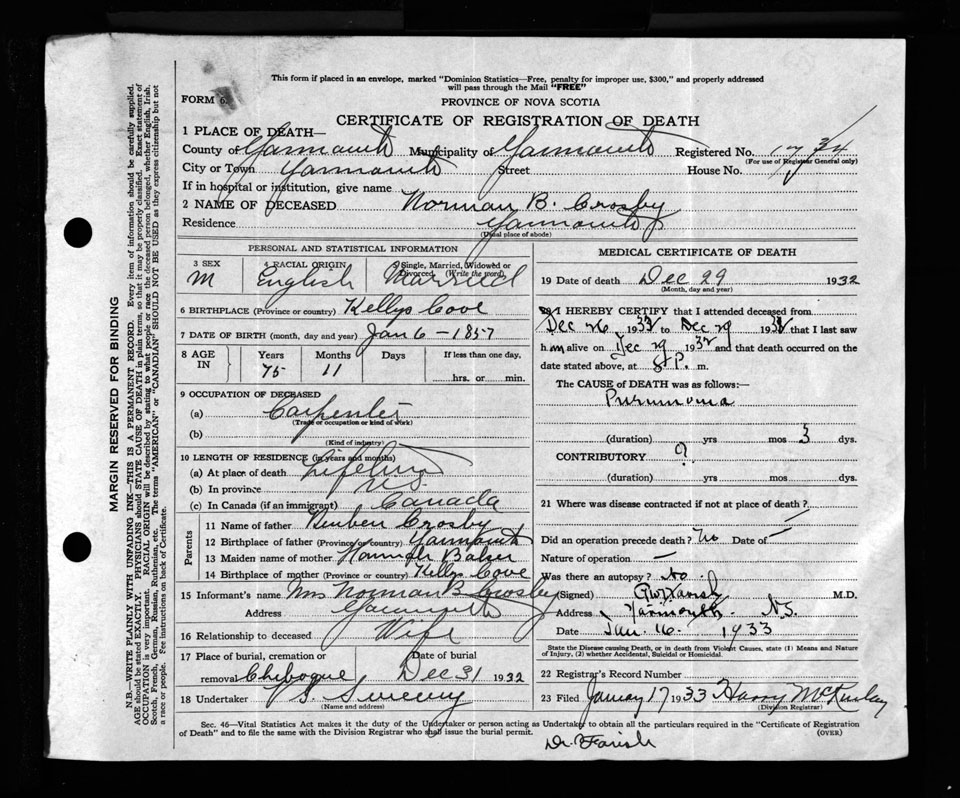 This form if placed in an envelope, marked "Dominion Statistics—Free, penalty for improper use, $300," and properly addressed
will pass through the Mail "FREE"
FORM 6.
PROVINCE OF NOVA SCOTIA
CERTIFICATE OF REGISTRATION OF DEATH
1 PLACE OF DEATH—
County of Yarmouth Municipality of Yarmouth Registered No.
(For use of Registrar General only)
City or Town Yarmouth Street House No.
If in hospital or institution, give name
2 NAME OF DECEASED Norman B. Crosby
Residence Yarmouth
(Usual place of abode)
PERSONAL AND STATISTICAL INFORMATION
3 SEX M 4 RACIAL ORIGIN English 5 Single, Married, Widowed or Divorced (Write the word) Married
6 BIRTHPLACE (Province or country) Kellys Cove
7 DATE OF BIRTH (month, day and year) Jan 6 - 1857
8 AGE IN Years 75 Months 11 Days If less than one day, hrs. or min.
9 OCCUPATION OF DECEASED
(a) Carpenter
(Trade or occupation or kind of work)
(b)
(Kind of industry)
10 LENGTH OF RESIDENCE (in years and months)
(a) At place of death Lifetime
(b) In province N.S.
(c) In Canada (if an immigrant) Canada
Parents
11 Name of father Reuben Crosby
12 Birthplace of father (Province or country) Yarmouth
13 Maiden name of mother Hannah Baker
14 Birthplace of mother (Province or country) Kellys Cove
15 Informant's name Mrs Norman B Crosby
Address Yarmouth
16 Relationship to deceased Wife
17 Place of burial, cremation or removal Chebogue Date of burial Dec 31 1932
18 Undertaker V S Sweeny
(Name and address)
MEDICAL CERTIFICATE OF DEATH
19 Date of death Dec 29 1932
(Month, day and year)
20 I HEREBY CERTIFY that I attended deceased from
Dec 26 1932 to Dec 29 1932 that I last saw
him alive on Dec 29 1932 and that death occurred on the
date stated above, at P. m.
The CAUSE OF DEATH was as follows:—
Pneumonia
(duration) yrs mos 3 dys.
CONTRIBUTORY
(duration) yrs mos dys.
21 Where was disease contracted if not at place of death?
Did an operation precede death? No Date of —
Nature of operation —
Was there an autopsy? No
(Signed) GW Farish M.D.
Address Yarmouth N.S.
Date Jan. 16. 1933
State the Disease causing Death, or in death from Violent Causes, state (1) Means and Nature
of Injury, (2) whether Accidental, Suicidal or Homicidal.
22 Registrar's Record Number
23 Filed January 17 1933 Harry McKinley
(Division Registrar)
Sec. 46—Vital Statistics Act makes it the duty of the Undertaker or person acting as Undertaker to obtain all the particulars required in the "Certificate of Registration
of Death" and to file the same with the Division Registrar who shall issue the burial permit. (OVER)
Dr. Farish
MARGIN RESERVED FOR BINDING
N.B.—WRITE PLAINLY WITH UNFADING INK—THIS IS A PERMANENT RECORD. Every item of information should be carefully supplied.
AGE should be stated EXACTLY. PHYSICIANS should STATE CAUSE OF DEATH in plain terms, so that it may be properly classified. Exact statement of
OCCUPATION is very important. RACIAL ORIGIN will be described by stating to what people or race the deceased person belonged, whether English, Irish,
Scotch, French, German, Russian, Ruthenian, etc. The terms "AMERICAN" or "CANADIAN" SHOULD NOT BE USED as they express citizenship but not
a race or people. Fee instructions on back of Certificate.